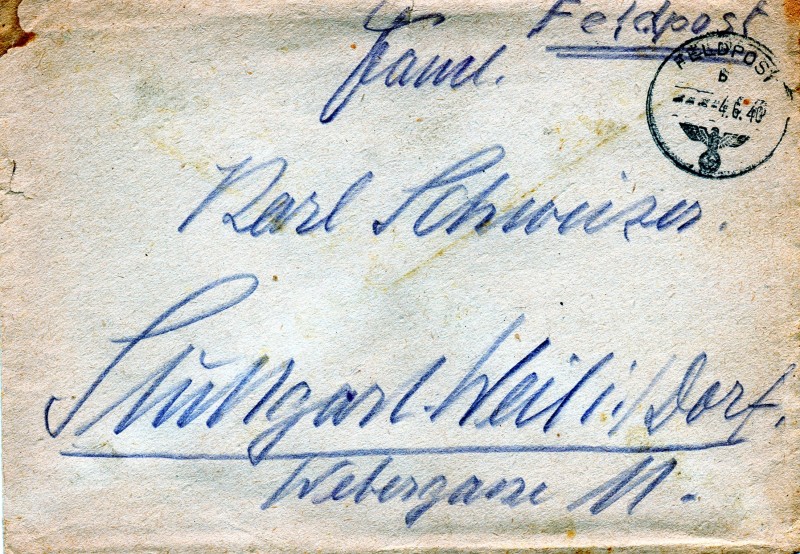 Feldpost
Faml.
FELDPOST
b
-4.6.40
Karl Schweizer.
Stuttgart-Weil i./Dorf.
Webergasse 11.